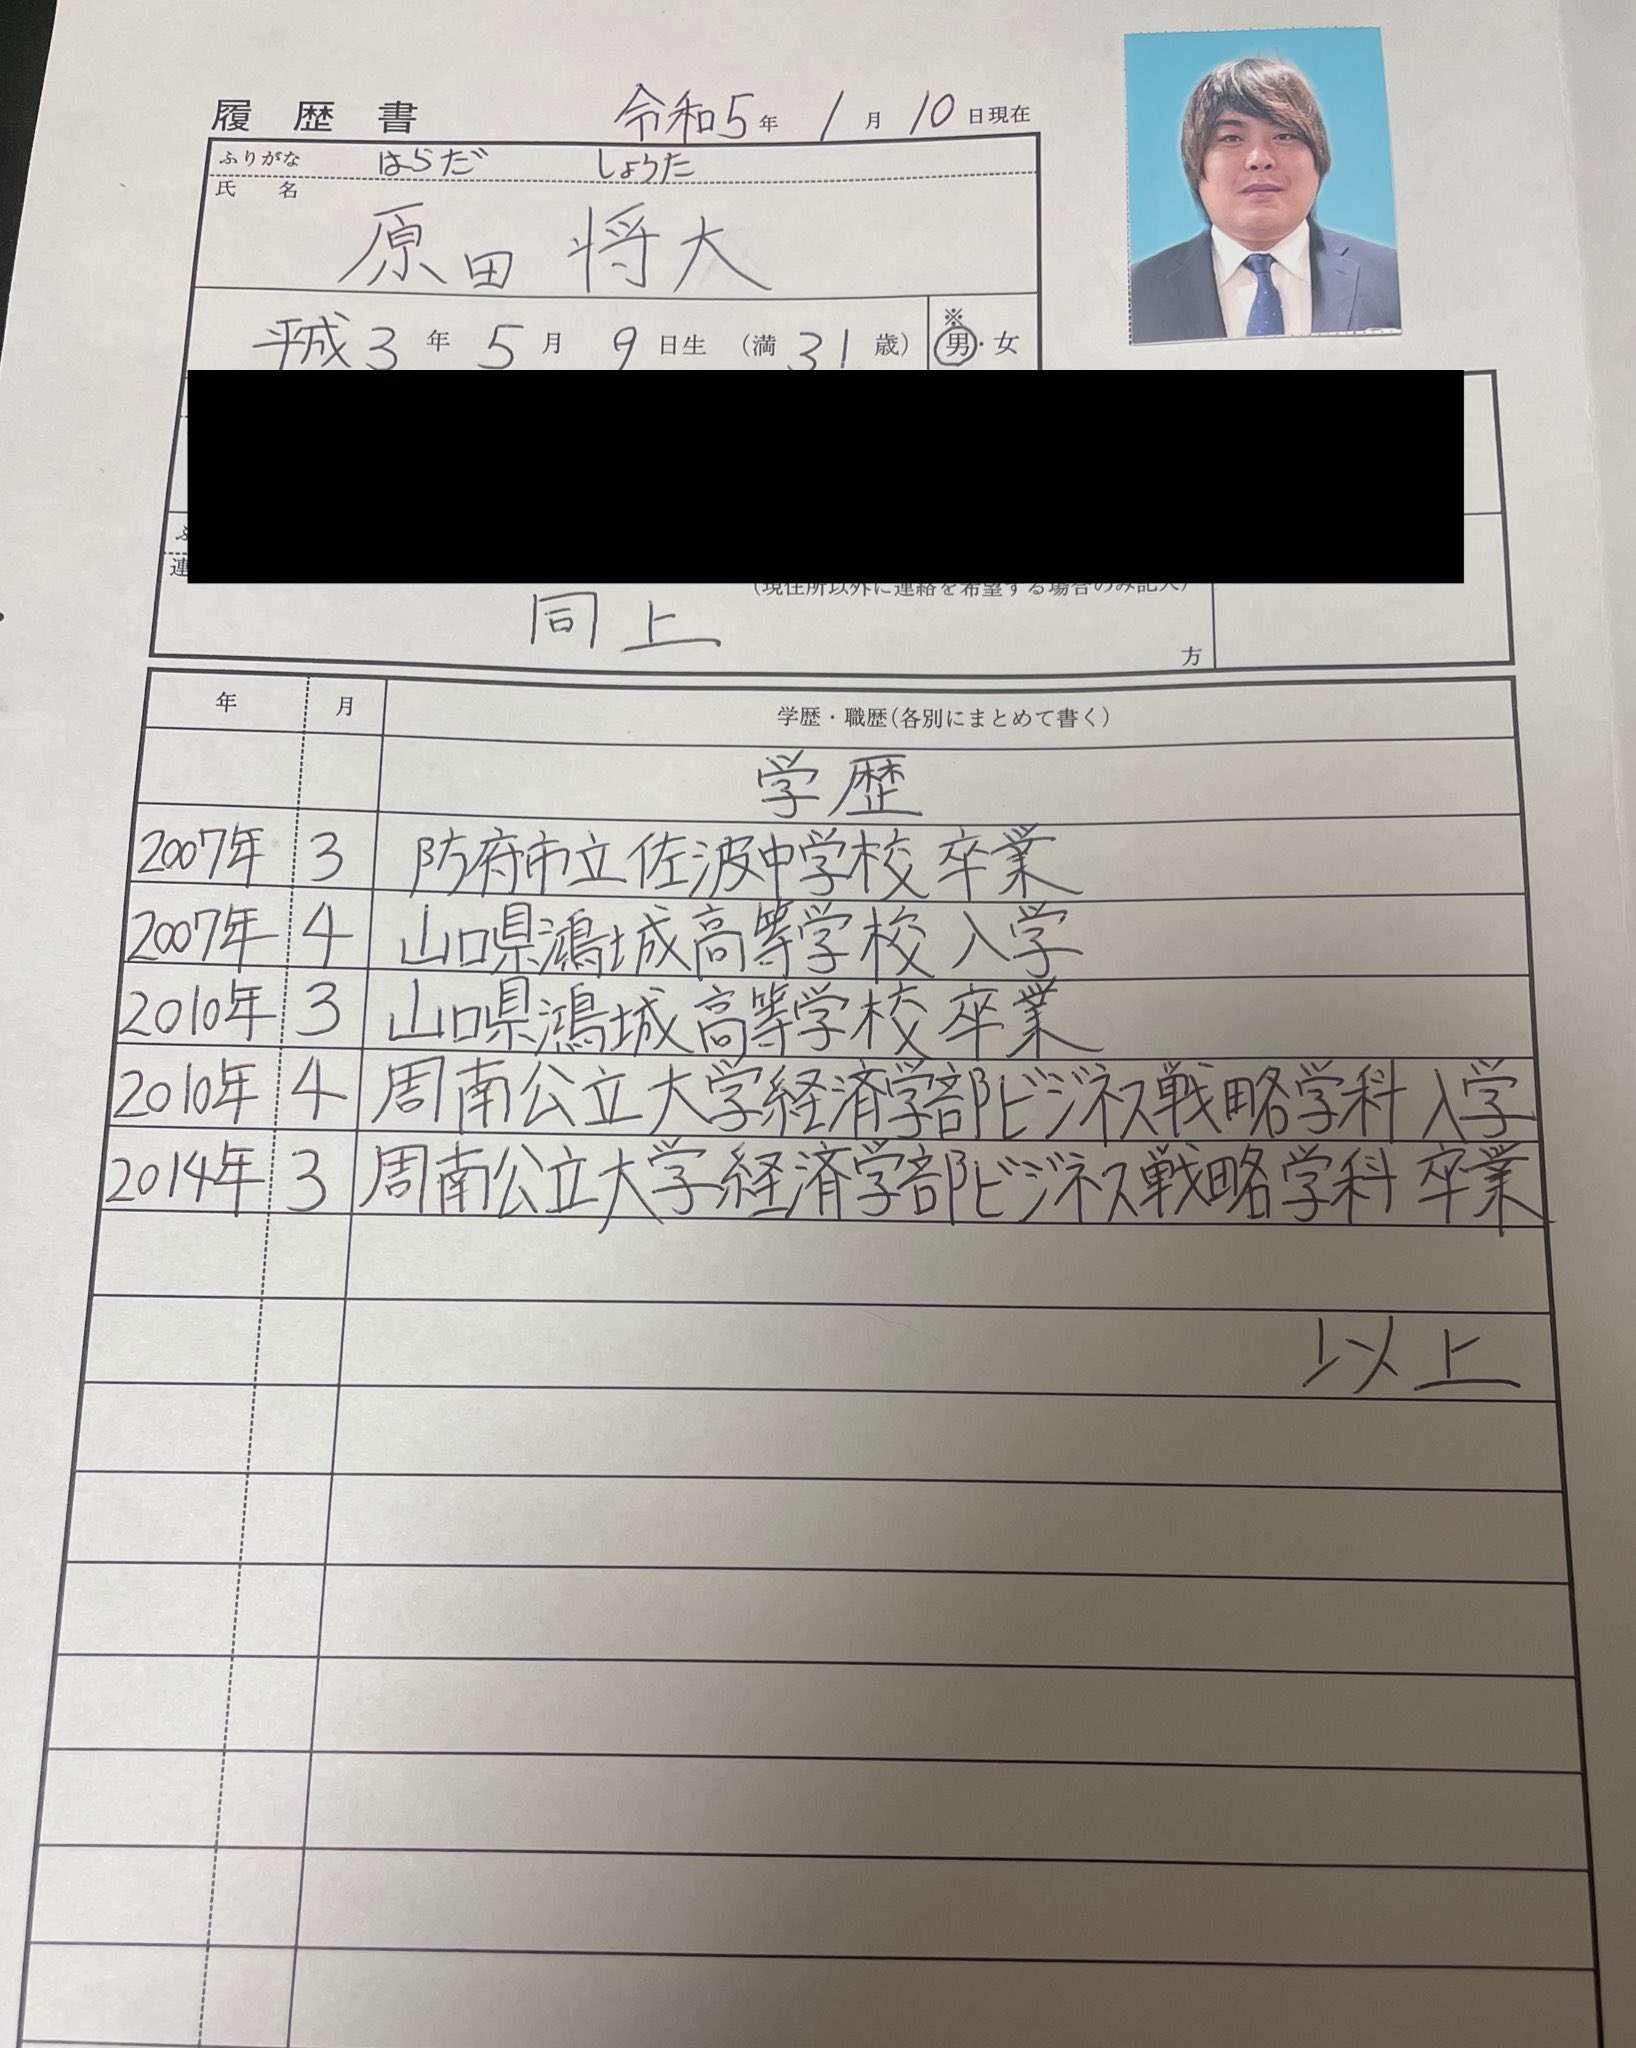 履歴書 令和5年 1月 10日現在
ふりがな はらだ しょうた
氏名
原田 将大
※
平成3年 5月 9日生 (満31歳) 男・女
(現住所以外に連絡を希望する場合のみ記入)
同上
方
年 月 学歴・職歴(各別にまとめて書く)
学歴
2007年 3 防府市立佐波中学校 卒業
2007年 4 山口県鴻城高等学校 入学
2010年 3 山口県鴻城高等学校 卒業
2010年 4 周南公立大学経済学部ビジネス戦略学科 入学
2014年 3 周南公立大学経済学部ビジネス戦略学科 卒業
以上